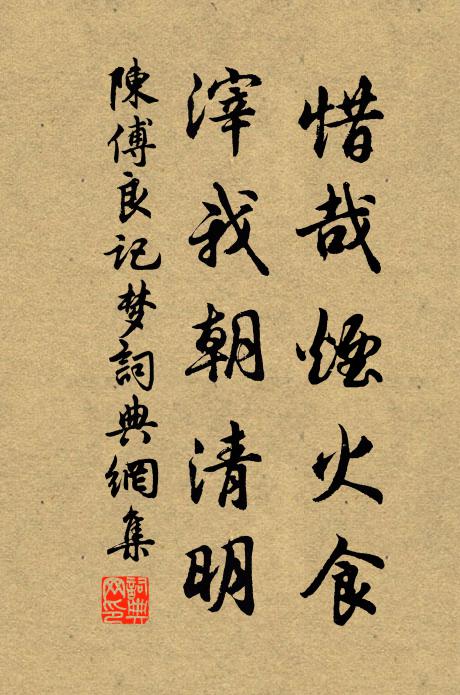 惜哉煙火食
滓我朝清明
陳傅良记梦詞典網集
詞典网印